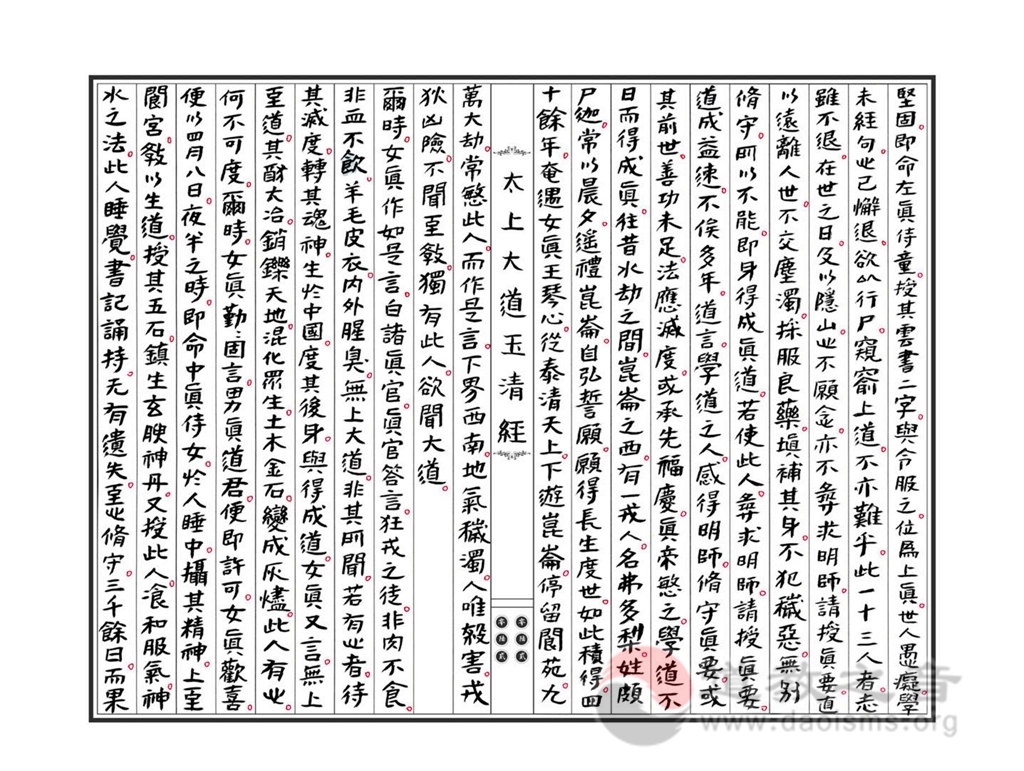 堅固即命左真侍童授其雲書二字與令服之位為上真世人愚癡學
未經旬也已懈退欲以行尸窺窬上道不亦難乎此一十三人者志
雖不退在世之日及以隱山也不願金亦不尋求明師請授真要直
以遠離人世不交塵濁採服良藥填補其身不犯穢惡無
脩守所以不能即身得成真道若使此人尋求明師請授真要
道成益速不俟多年道言學道之人感得明師脩守真要或
其前世善功未足法應滅度或承先福慶真帝慜之學道不
日而得成真往昔水劫之間崑崙之西有一戎人名弗多梨姓頗
尸迦常以晨夕遙禮崑崙自弘誓願願得長生度世如此積得四
十餘年奄遇女真王琴心從泰清天上下遊崑崙停留閬苑九
太上大道玉清經
萬大劫常慜此人而作是言下界西南地氣穢濁人唯殺害戎
狄凶險不聞至教獨有此人欲聞大道
爾時女真作如是言白諸真官真官答言狂戎之徒非肉不食
非血不飲羊毛皮衣內外腥臭無上大道非其所聞若有心者待
其滅度轉其魂神生於中國度其後身與得成道女真又言無上
至道其猷大冶銷鑠天地混化眾生土木金石變成灰燼此人有心
何不可度爾時女真勤勤固言男真道君便即許可女真歡喜
便以四月八日夜半之時即命中真侍女於人睡中攝其精神上至
閬宮教以生道授其五石鎮生玄腴神丹又授此人飡和服氣神
水之法此人睡覺書記誦持无有遺失至心脩守三千餘日而果
道教之音
www.daoisms.org